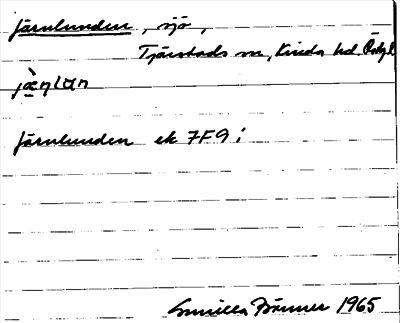 Järnlunden, sjö,
Tjärstads sn, Kinda hd Östgl
jæ̀ṇlɷn
Järnlunden ek 7F9i
Gunilla Bränner 1965